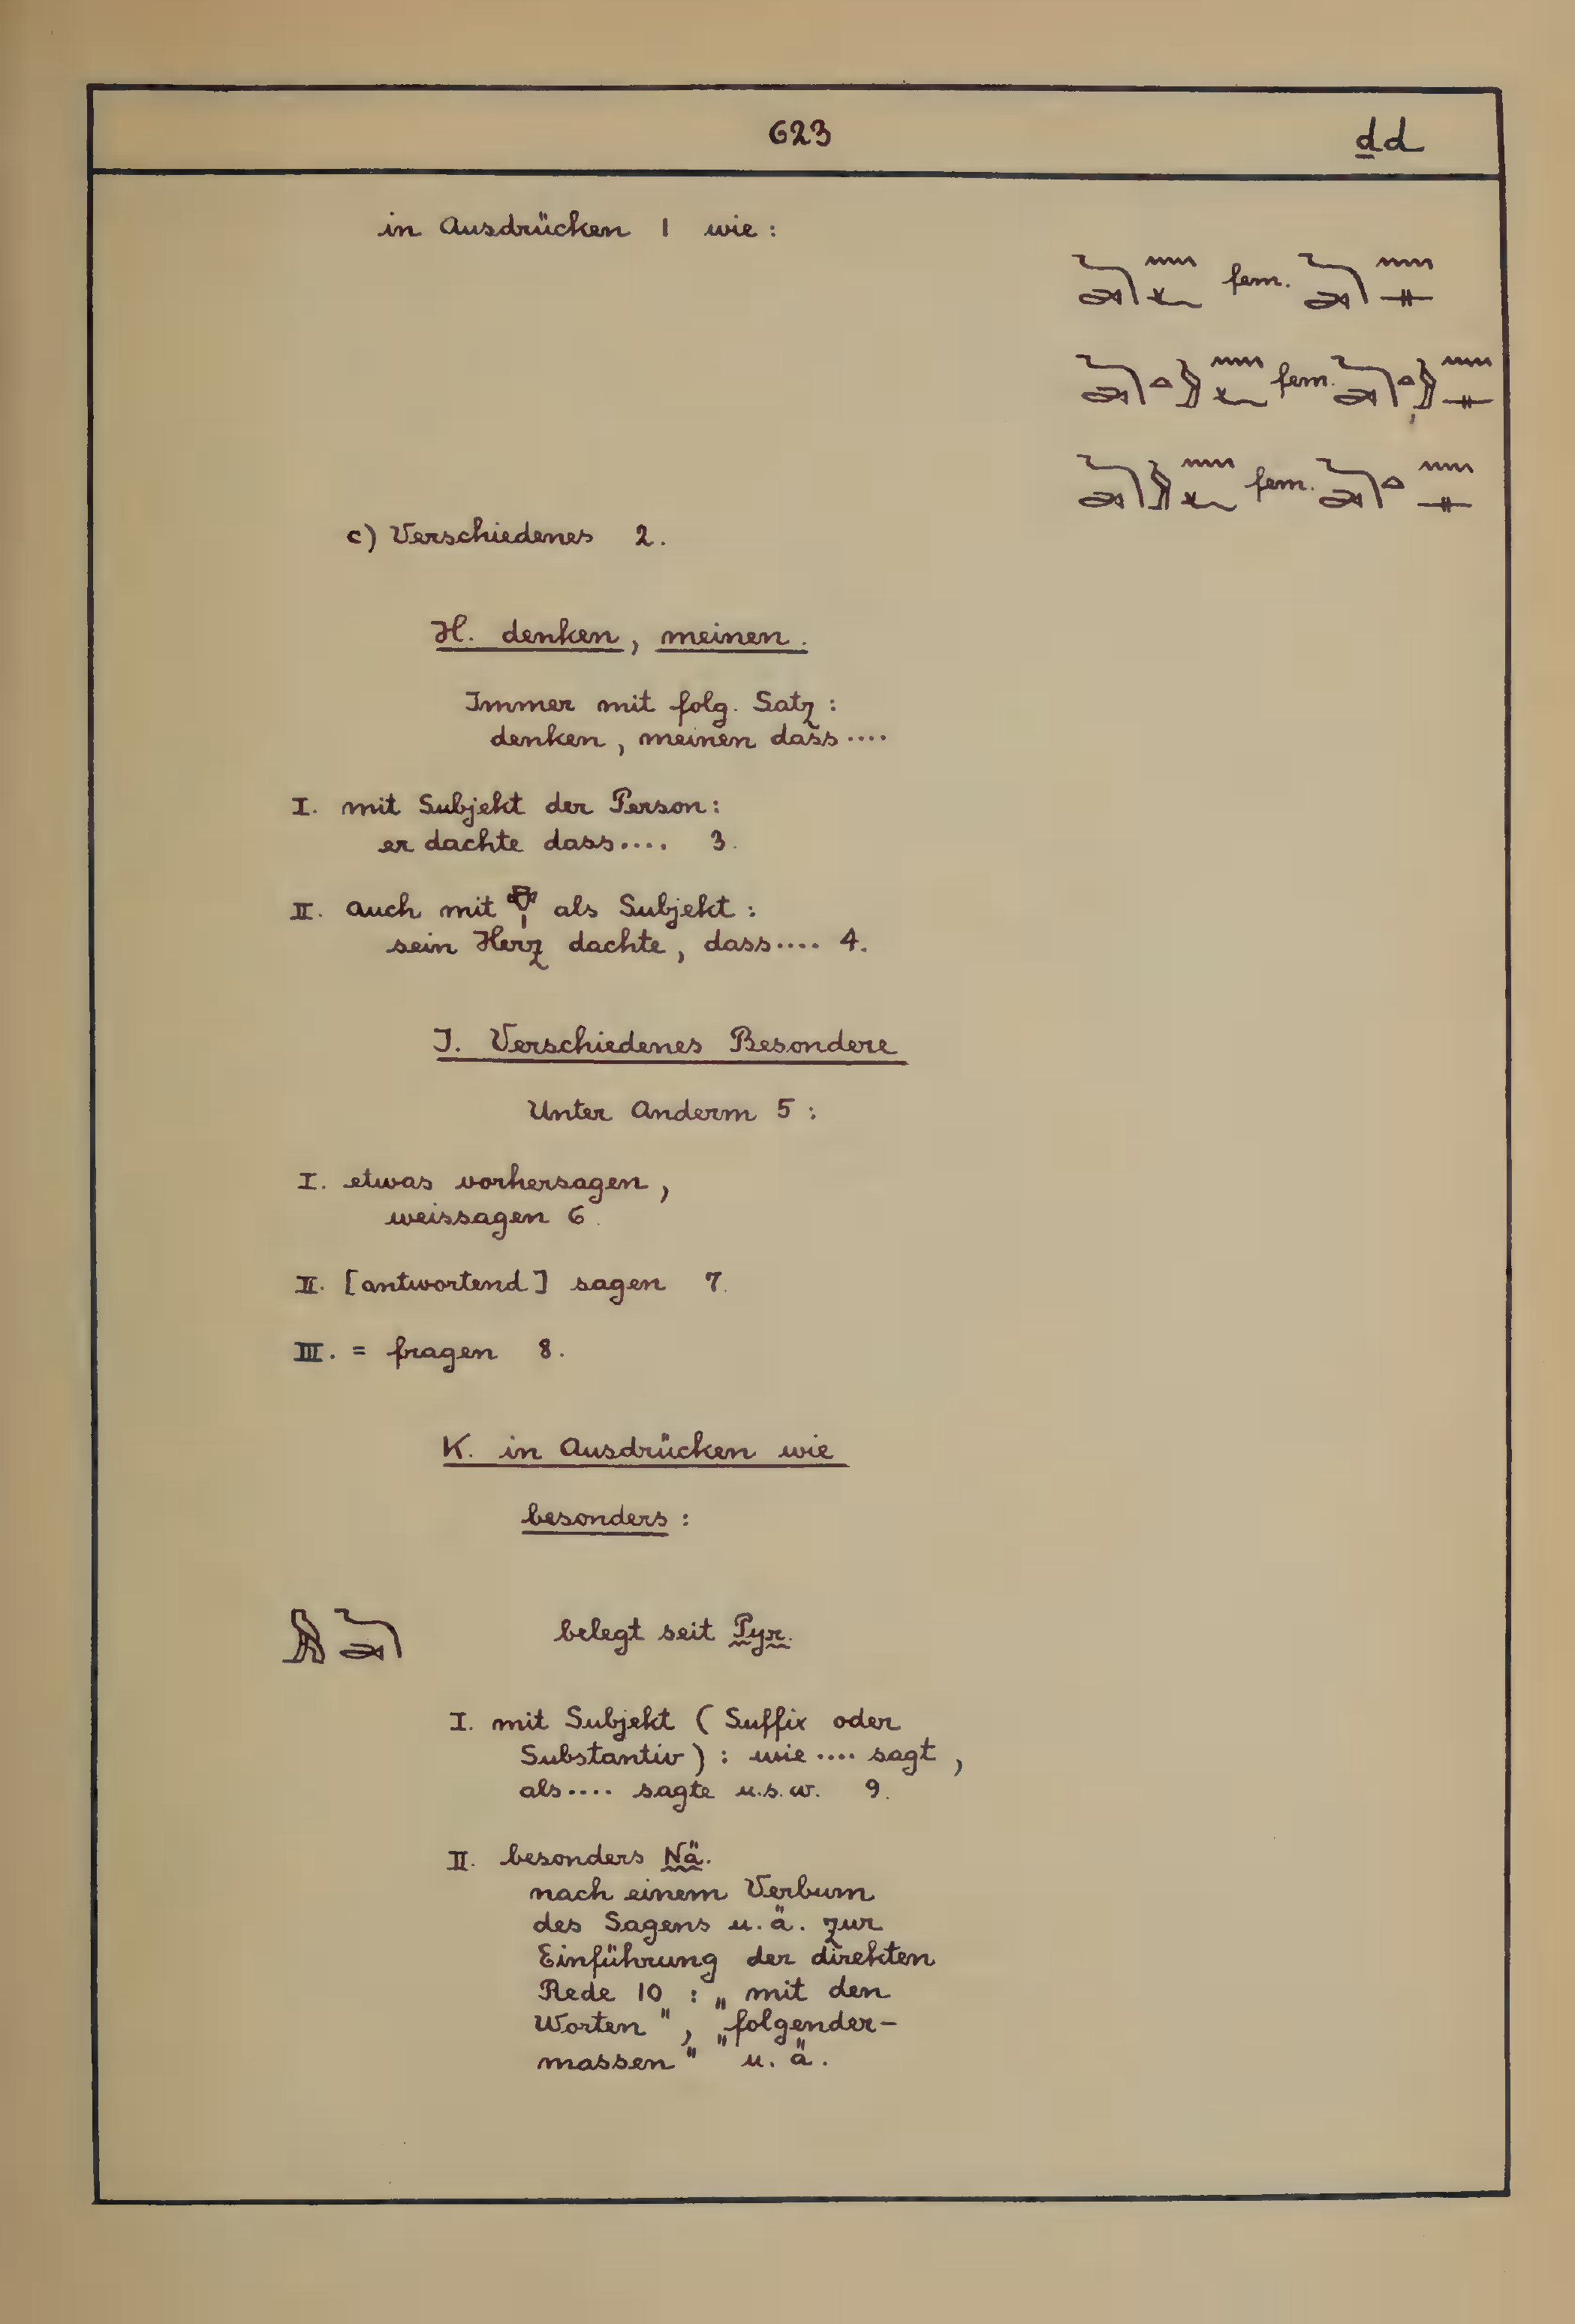 623
ḏd
in Ausdrücken 1 wie:
𓆓𓂧𓈖𓆑 fem. 𓆓𓂧𓈖𓊃
fem.
fem.
c) Verschiedenes 2.
H. denken, meinen.
Immer mit folg. Satz:
denken, meinen dass....
I. mit Subjekt der Person:
er dachte dass.... 3.
II. auch mit 𓄣𓏤 als Subjekt:
sein Herz dachte, dass.... 4.
J. Verschiedenes Besondere
Unter Anderm 5:
I. etwas vorhersagen,
weissagen 6.
II. [antwortend] sagen 7.
III. = fragen 8.
K. in Ausdrücken wie
besonders:
belegt seit Pyr.
I. mit Subjekt (Suffix oder
Substantiv): wie.... sagt,
als.... sagte u.s.w. 9.
II. besonders Nä.
nach einem Verbum
des Sagens u. ä. zur
Einführung der direkten
Rede 10: „mit den
Worten", „folgender-
massen" u. ä.